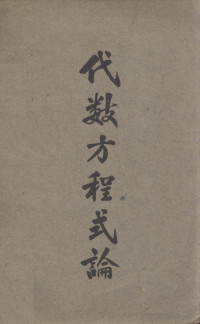 代数方程式論